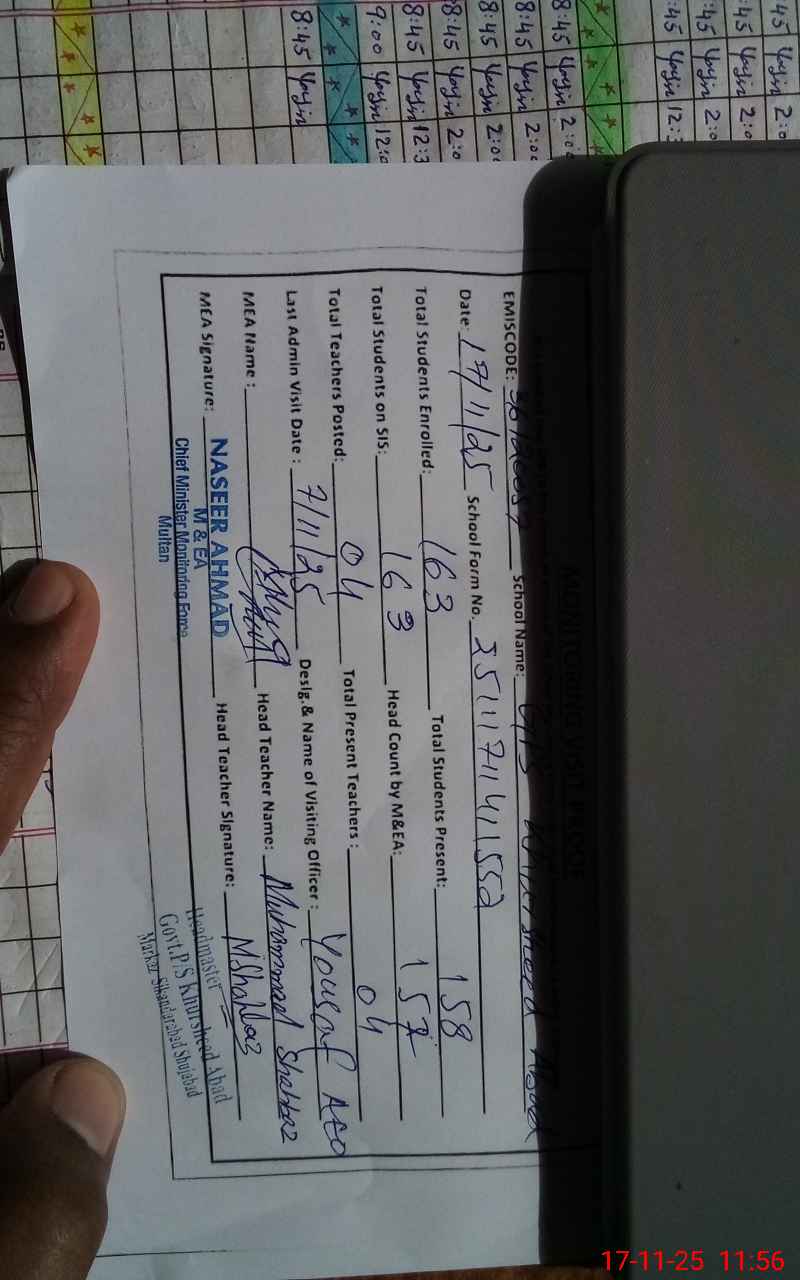 MONITORING VISIT PROOF
EMISCODE: School Name: GPS Khursheed Abad
Date: 17/11/25 School Form No. 25111711411552
Total Students Enrolled: 163 Total Students Present: 158
Total Students on SIS: 163 Head Count by M&EA: 157
Total Teachers Posted: 04 Total Present Teachers: 04
Last Admin Visit Date: 7/11/25 Desig.& Name of Visiting Officer: Yousaf AEO
MEA Name: Head Teacher Name: Muhammad Shahbaz
MEA Signature: Head Teacher Signature: MShahbaz
NASEER AHMAD
M & EA
Chief Minister Monitoring Force
Multan
Headmaster
Govt.P/S Khursheed Abad
Markaz Sikandarabad Shujabad
:45
:45
:45
:45
8:45 2:0
8:45 2:0
8:45 2:0
8:45 2:0
8:45 12:3
9:00 12:0
8:45
17-11-25 11:56